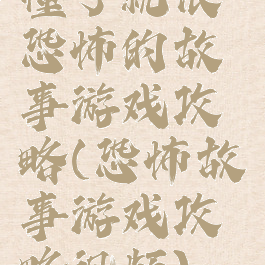 懂了就很
恐怖的故
事游戏攻
略(恐怖故
事游戏攻
略视频)